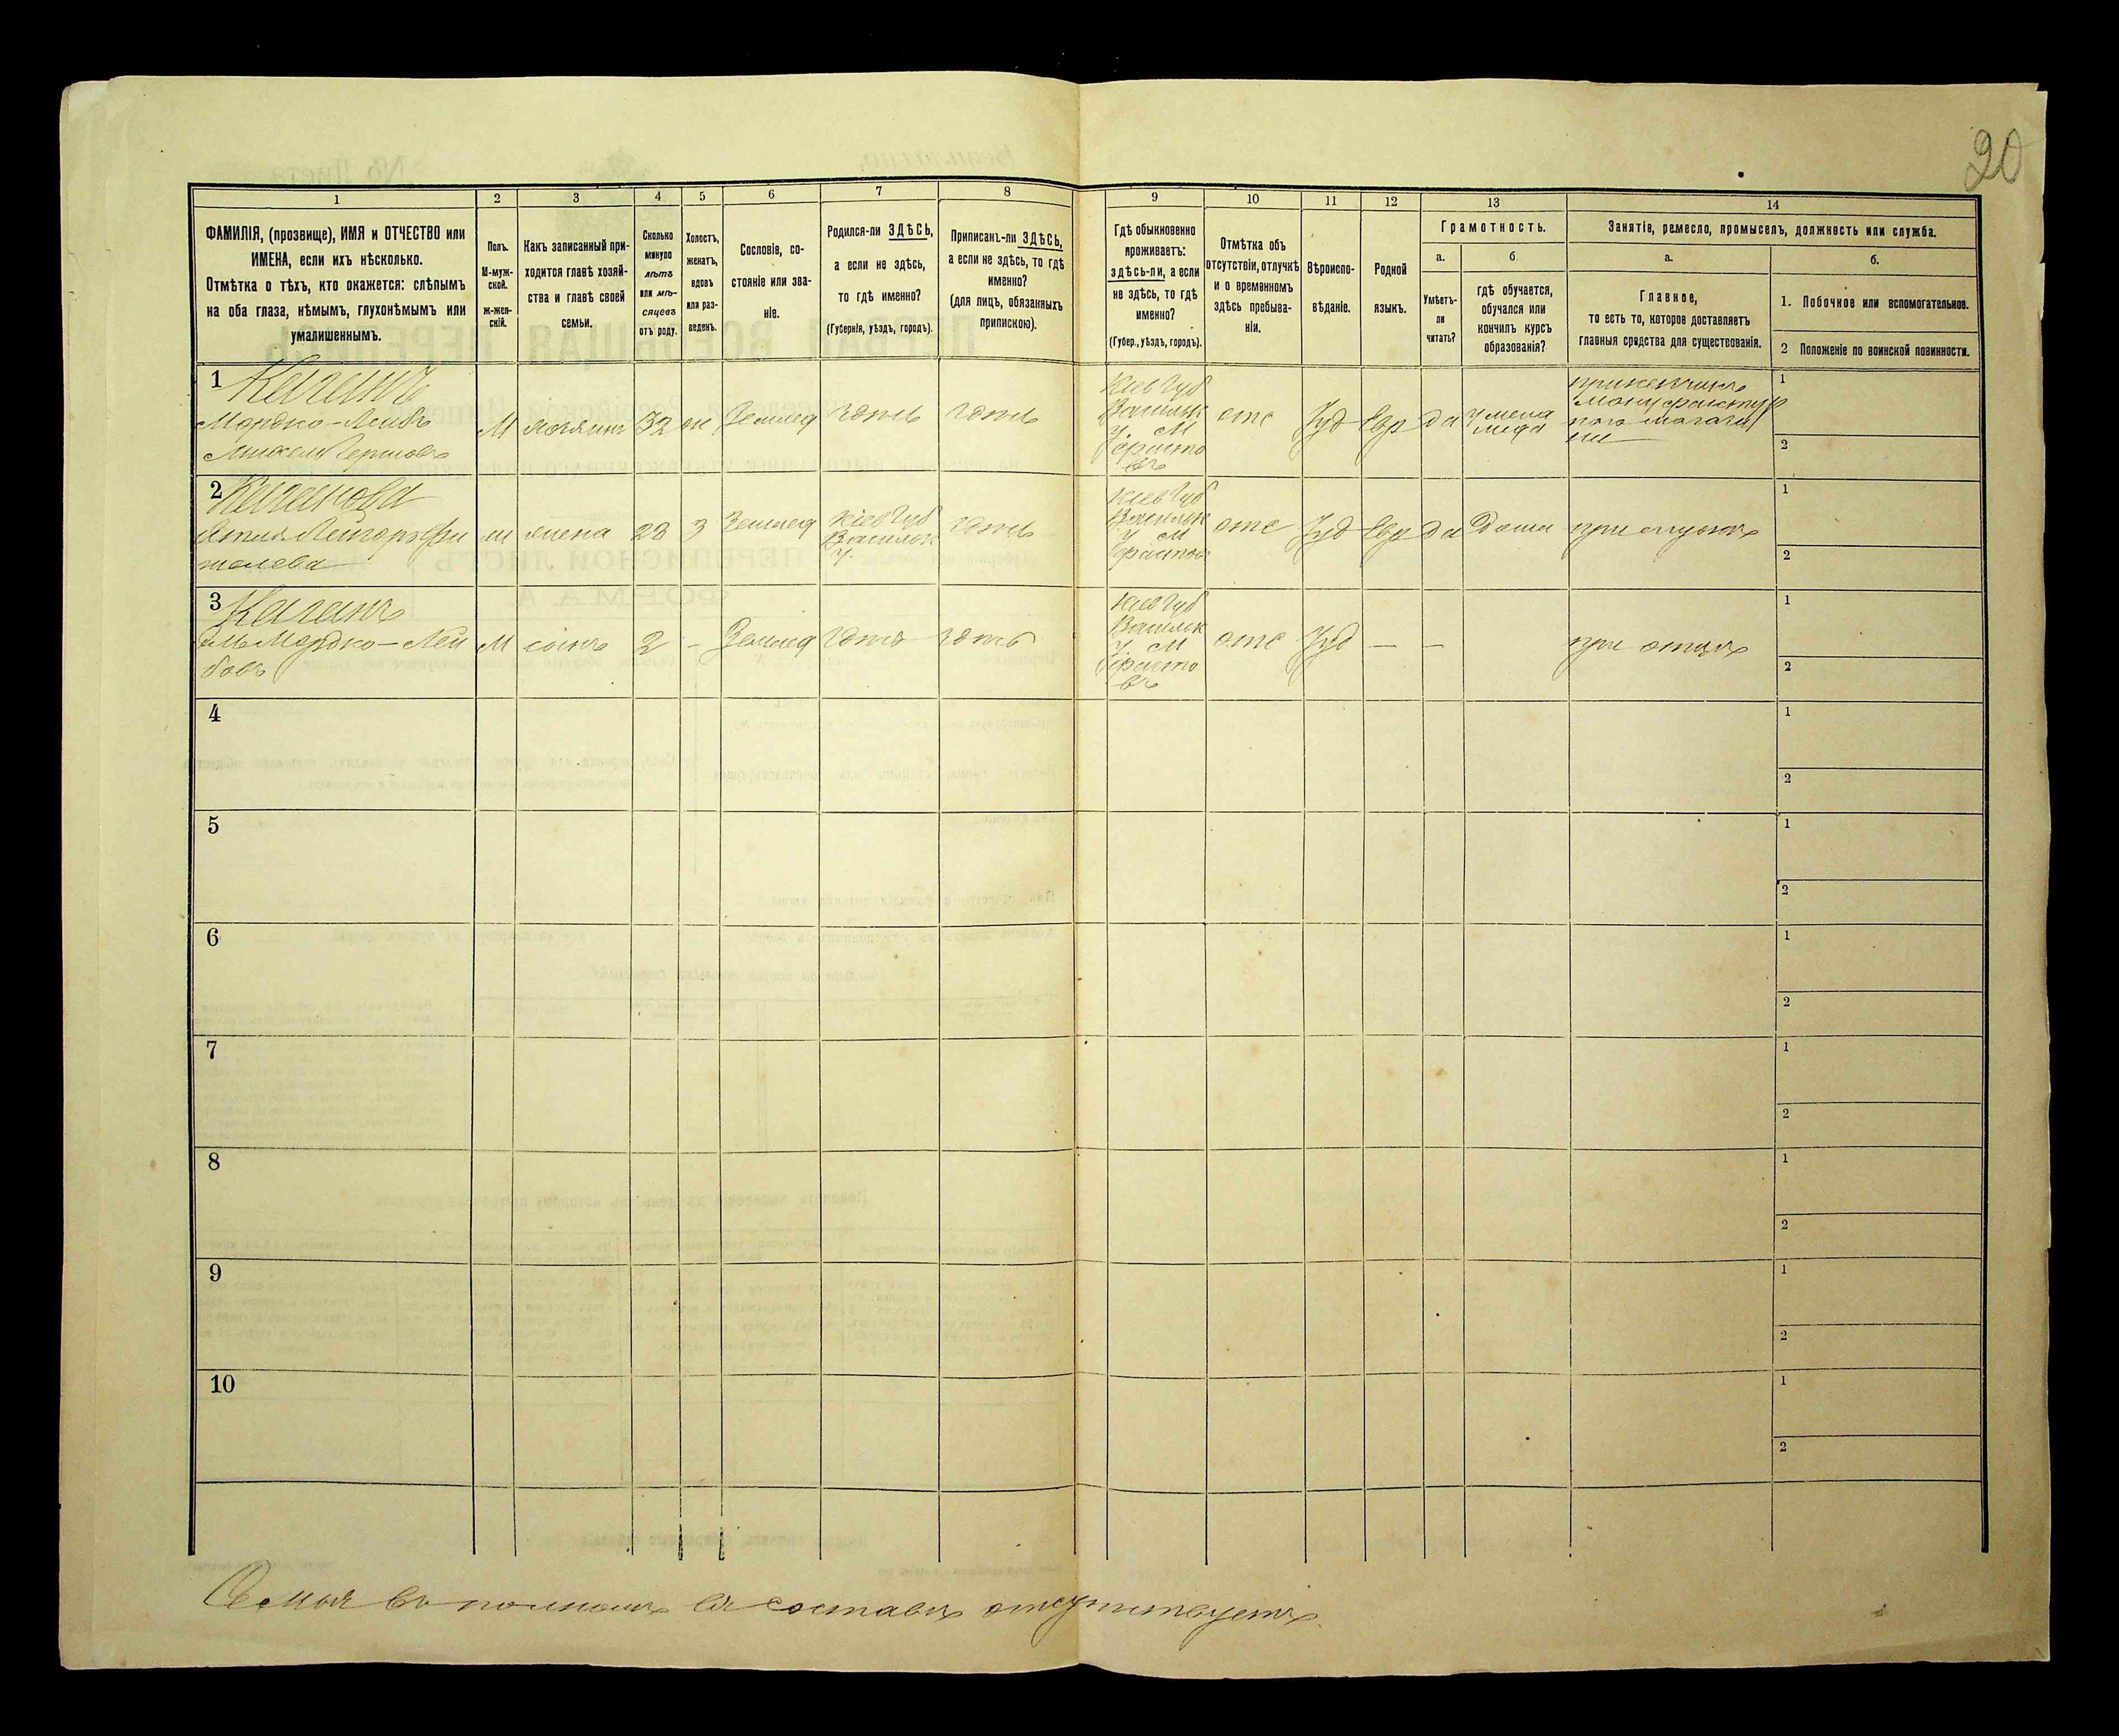 20
1
2
3
4
5
6
7
8
9
10
11
12
13
14
ФАМИЛІЯ, (прозвище), ИМЯ и ОТЧЕСТВО или
ИМЕНА, если ихъ нѣсколько.
Отмѣтка о тѣхъ, кто окажется: слѣпымъ
на оба глаза, нѣмымъ, глухонѣмымъ или
умалишеннымъ.
Полъ.
М-муж-
ской.
ж-жен-
скій.
Какъ записанный при-
ходится главѣ хозяй-
ства и главѣ своей
семьи.
Сколько
минуло
лѣтъ
или мѣ-
сяцевъ
отъ роду.
Холостъ,
женатъ,
вдовъ
или раз-
веденъ.
Сословіе, со-
стояніе или зва-
ніе.
Родился-ли ЗДѢСЬ,
а если не здѣсь,
то гдѣ именно?
(Губернія, уѣздъ, городъ).
Приписанъ-ли ЗДѢСЬ,
а если не здѣсь, то гдѣ
именно?
(для лицъ, обязанныхъ
припискою).
Гдѣ обыкновенно
проживаетъ:
здѣсь-ли, а если
не здѣсь, то гдѣ
именно?
(Губер., уѣздъ, городъ).
Отмѣтка объ
отсутствіи, отлучкѣ
и о временномъ
здѣсь пребыва-
ніи.
Вѣроиспо-
вѣданіе.
Родной
языкъ.
Грамотность.
а.
б
Умѣетъ-
ли
читать?
гдѣ обучается,
обучался или
кончилъ курсъ
образованія?
Занятіе, ремесло, промыселъ, должность или служба.
а.
б.
Главное,
то есть то, которое доставляетъ
главныя средства для существованія.
1. Побочное или вспомогательное.
2 Положеніе по воинской повинности.
1 Каганъ
Мордко-Лейбъ
М
хозяинъ
32
ж
Землед
здѣсь
здѣсь
Кіев Губ
Васильк
у. М
Фасто
въ
отс
Іуд
Евр
да
у мела
меда
прикащикъ
мануфактур
наго магази
на
1
2
2 Кагинова
ж
жена
28
з
Землед
Кіев Губ
Васильк
у.
здѣсь
Кіев Губ
Васильк
у М
Фастов
отс
Іуд
Евр
да
Дома
при мужѣ
1
2
3 Каганъ
Мордко-Лей
бовъ
М
сынъ
2
-
Землед
здѣсь
здѣсь
Кіев Губ
Васильк
у. М
Фасто
въ
отс
Іуд
—
—
при отцѣ
1
2
4
1
2
5
1
2
6
1
2
7
1
2
8
1
2
9
1
2
10
1
2
Семья въ полномъ ея составѣ отсутствуетъ.